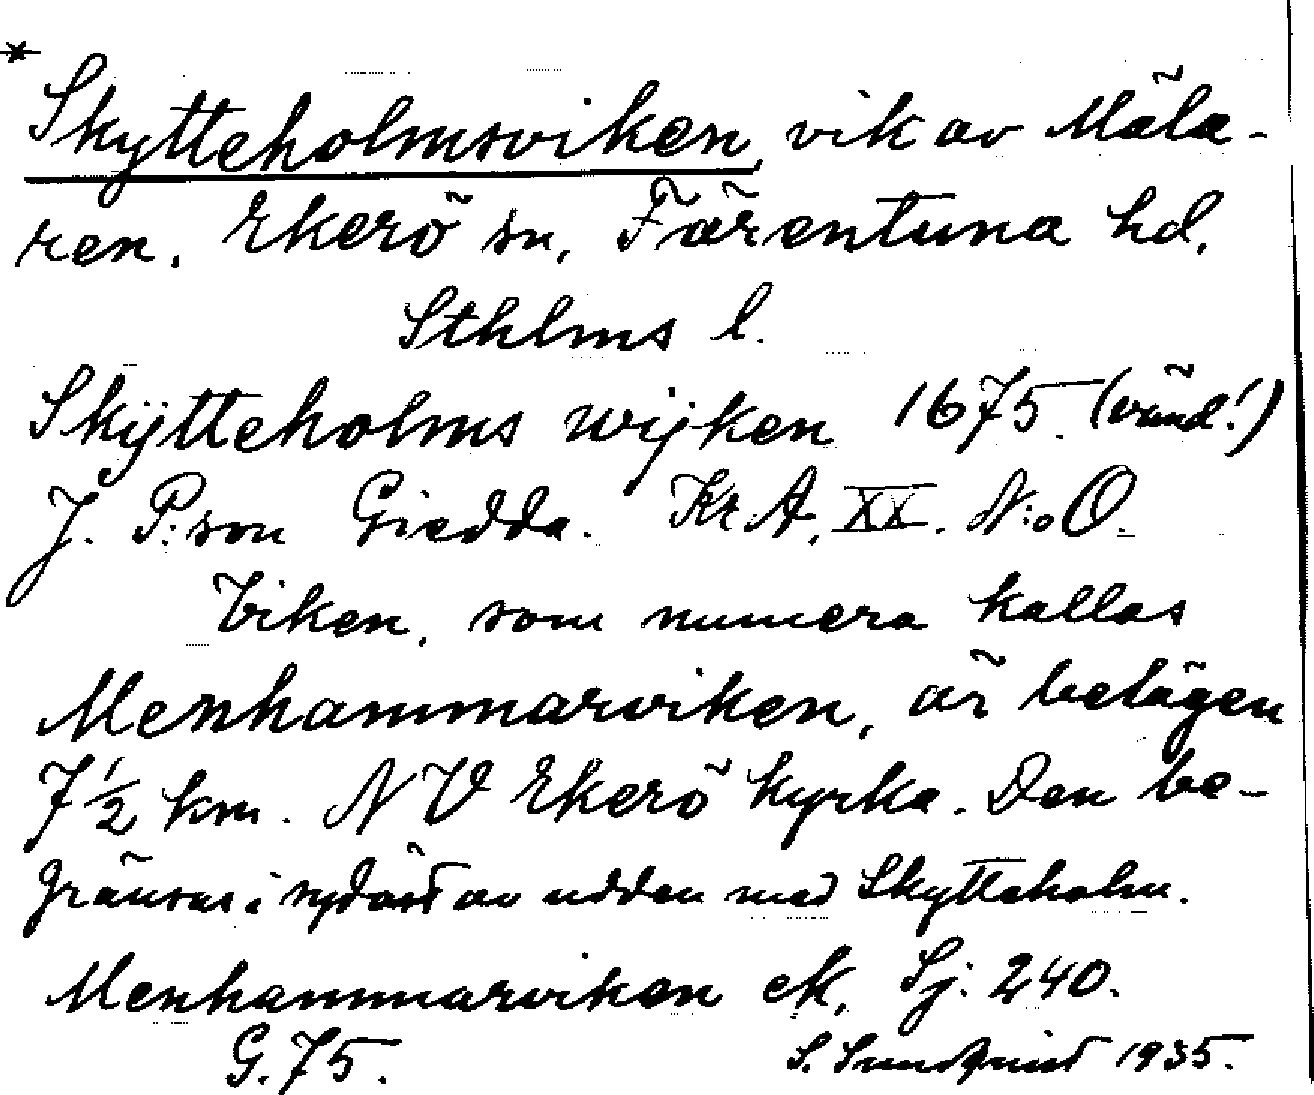 * Skytteholmsviken, vik av Mäla-
ren. Ekerö sn, Färentuna hd,
Sthlms l.
Skÿtteholms wijken 1675. (vänd!)
J. P:son Giedda. Kr A, XX. N:o O.
Viken, som numera kallas
Menhammarviken, är belägen
7 1/2 km. NV Ekerö kyrka. Den be-
gränsas i sydöst av udden med Skytteholm.
Menhammarviken ek, Sj: 240.
G. 75. S. Sundqvist 1935.